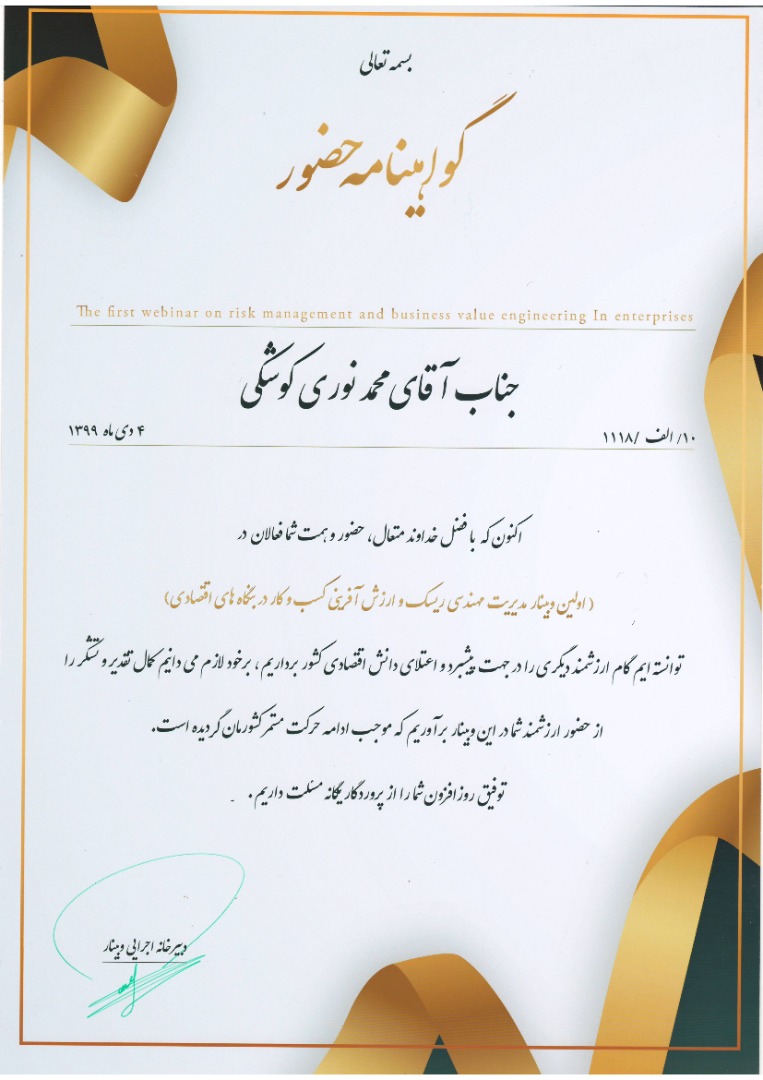 بسمه تعالی
گواهینامه حضور
The first webinar on risk management and business value engineering In enterprises
جناب آقای محمد نوری کوشکی
۱۰/ الف /۱۱۱۸
۴ دی ماه ۱۳۹۹
اکنون که با فضل خداوند متعال، حضور و همت شما فعالان در
( اولین وبینار مدیریت مهندسی ریسک و ارزش آفرینی کسب و کار در بنگاه های اقتصادی)
توانسته ایم گام ارزشمند دیگری را در جهت پیشبرد و اعتلای دانش اقتصادی کشور برداریم ، برخود لازم می دانیم کمال تقدیر و تشکر را
از حضور ارزشمند شما در این وبینار برآوریم که موجب ادامه حرکت مستمر کشورمان گردیده است.
توفیق روز افزون شما را از پروردگار یگانه مسئلت داریم .
دبیرخانه اجرایی وبینار